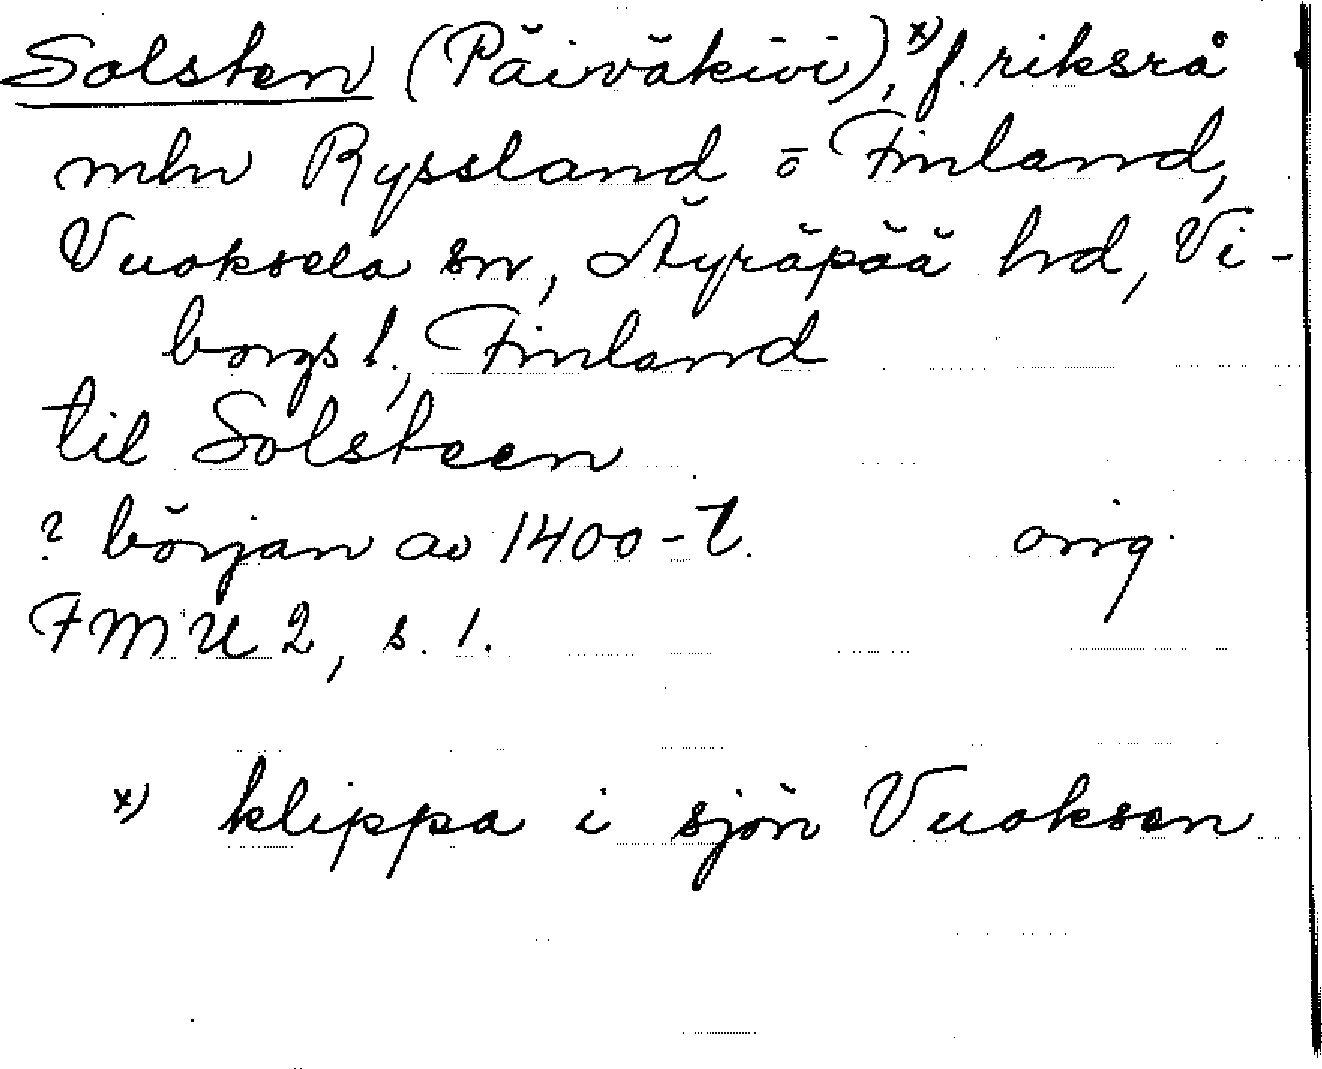 Solsten (Päiväkivi),ˣ⁾ f. riksrå
mln Ryssland o Finland,
Vuoksela sn, Äyräpää hd, Vi-
borgs l., Finland
til Solsteen
? början av 1400-t. orig.
FMU 2, s. 1.
x) klippa i sjön Vuoksen